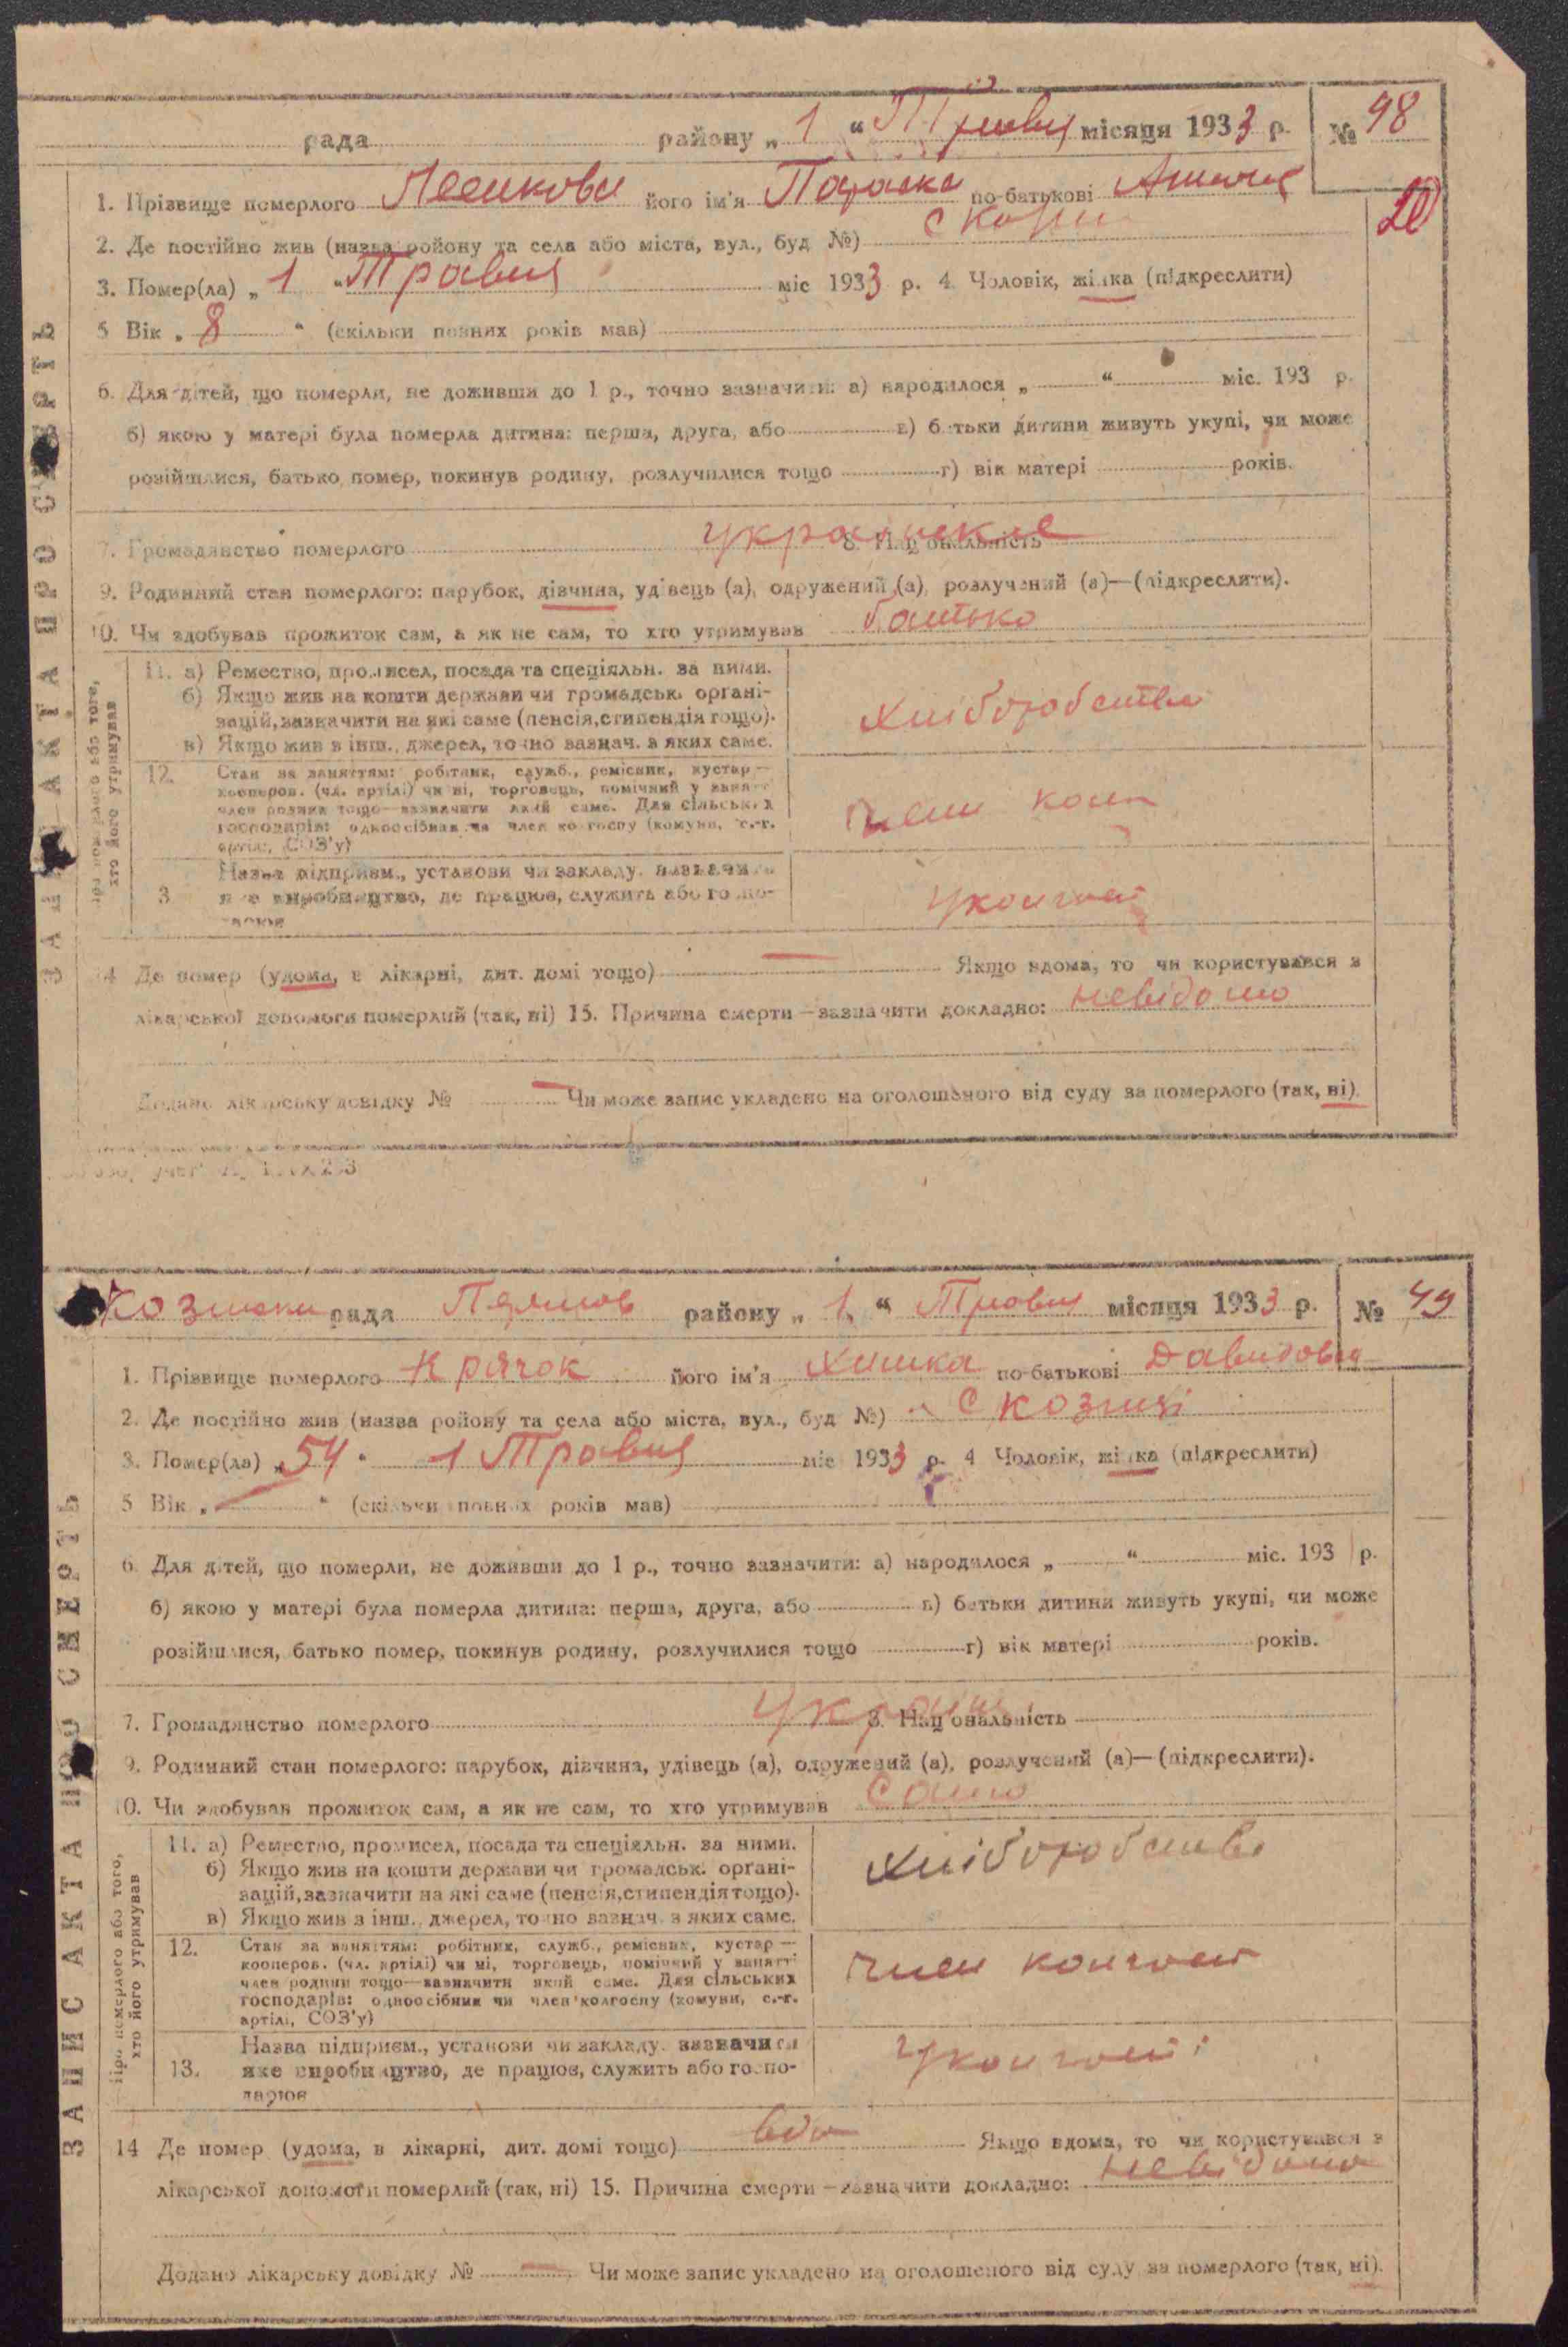 рада району „ 1 “ Травня місяця 1933 р. № 98
20
1. Прізвище померлого його ім'я Параска по-батькові
2. Де постійно жив (назва району та села або міста, вул., буд №) с
3. Помер(ла) „ 1 “ Травня міс 1933 р. 4 Чоловік, жінка (підкреслити)
5 Вік „ 8 “ (скільки повних років мав)
6. Для дітей, що померли, не доживши до 1 р., точно зазначити: а) народилося „ “ міс. 193 р.
б) якою у матері була померла дитина: перша, друга, або в) батьки дитини живуть укупі, чи може
розійшлися, батько помер, покинув родину, розлучилися тощо г) вік матері років.
7. Громадянство померлого 8. Національність
9. Родинний стан померлого: парубок, дівчина, удівець (а), одружений (а), розлучений (а)—(підкреслити).
10. Чи здобував прожиток сам, а як не сам, то хто утримував батько
ЗАПИС АКТА ПРО СМЕРТЬ
Про померлого або того, хто його утримував
11. а) Ремество, промисел, посада та спеціяльн. за ними.
б) Якщо жив на кошти держави чи громадськ. органі-
зацій, зазначити на які саме (пенсія, стипендія тощо).
в) Якщо жив з інш., джерел, точно вазнач. з яких саме.
Хліборобство
12. Стан за заняттям: робітник, служб., ремісник, кустар —
кооперов. (чл. артілі) чи ні, торговець, помічний у занятт
член родини тощо—зазначити який саме. Для сільських
господарів: одноосібник чи член колгоспу (комуни, с.-г.
артілі, СОЗ'у)
член
3 Назва підприєм., установи чи закладу. зазначити
яке виробництво, де працюв, служить або госпо-
дарюв
14 Де помер (удома, в лікарні, дит. домі тощо) — Якщо вдома, то чи користувався з
лікарської допомоги померлий (так, ні) 15. Причина смерти—зазначити докладно: невідомо
Додано лікарську довідку № — Чи може запис укладено на оголошеного від суду за померлого (так, ні).
рада району „ 1 “ Травня місяця 1933 р. № 49
1. Прізвище померлого Крячок його ім'я по-батькові Давидовна
2. Де постійно жив (назва району та села або міста, вул., буд №) с
3. Помер(ла) „ 54 “ 1 Травня міс 1933 р. 4 Чоловік, жінка (підкреслити)
5 Вік „ — “ (скільки повних років мав)
6. Для дітей, що померли, не доживши до 1 р., точно зазначити: а) народилося „ “ міс. 193 р.
б) якою у матері була померла дитина: перша, друга, або в) батьки дитини живуть укупі, чи може
розійшлися, батько помер, покинув родину, розлучилися тощо г) вік матері років.
7. Громадянство померлого 8. Національність
9. Родинний стан померлого: парубок, дівчина, удівець (а), одружений (а), розлучений (а)—(підкреслити).
10. Чи здобував прожиток сам, а як не сам, то хто утримував
ЗАПИС АКТА ПРО СМЕРТЬ
Про померлого або того, хто його утримував
11. а) Ремество, промисел, посада та спеціяльн. за ними.
б) Якщо жив на кошти держави чи громадськ. органі-
зацій, зазначити на які саме (пенсія, стипендія тощо).
в) Якщо жив з інш., джерел, точно вазнач. з яких саме.
Хліборобство
12. Стан за заняттям: робітник, служб., ремісник, кустар —
кооперов. (чл. артілі) чи ні, торговець, помічний у занятт
член родини тощо—зазначити який саме. Для сільських
господарів: одноосібник чи член колгоспу (комуни, с.-г.
артілі, СОЗ'у)
член
13. Назва підприєм., установи чи закладу. зазначити
яке виробництво, де працюв, служить або госпо-
дарюв
14 Де помер (удома, в лікарні, дит. домі тощо) Якщо вдома, то чи користувався з
лікарської допомоги померлий (так, ні) 15. Причина смерти—зазначити докладно: невідомо
Додано лікарську довідку № — Чи може запис укладено на оголошеного від суду за померлого (так, ні).